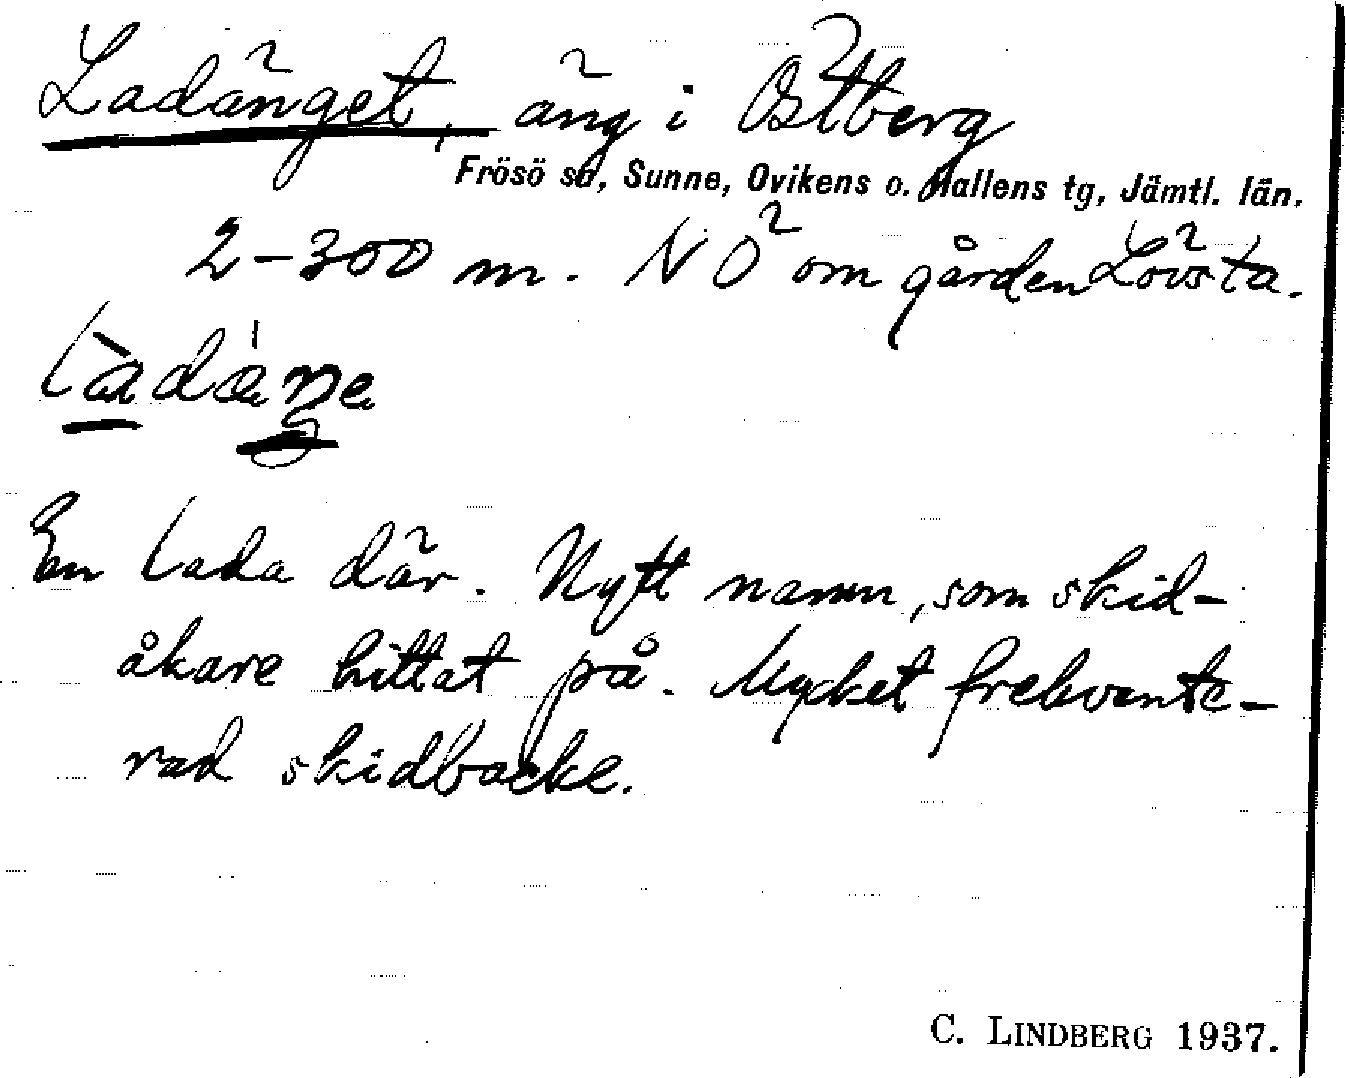 Ladänget, äng i Östberg
Frösö sn, Sunne, Ovikens o. Hallens tg, Jämtl. län.
2-300 m. NÖ om gården Lövsta.
En lada där. Nytt namn, som skid-
åkare hittat på. Mycket frekvente-
rad skidbacke.
C. LINDBERG 1937.